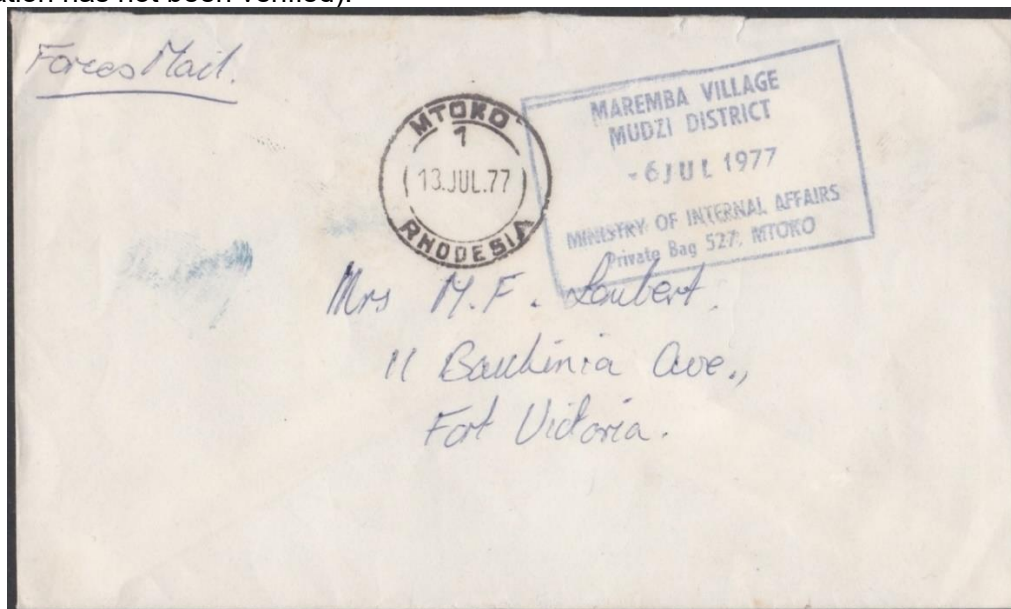 ation has not been verified).
Forces Mail.
MTOKO
1
13.JUL.77
RHODESIA
MAREMBA VILLAGE
MUDZI DISTRICT
-6 JUL 1977
MINISTRY OF INTERNAL AFFAIRS
Private Bag 527, MTOKO
Mrs M.F. Loubert.
11 Bauhinia Ave.,
Fort Victoria.